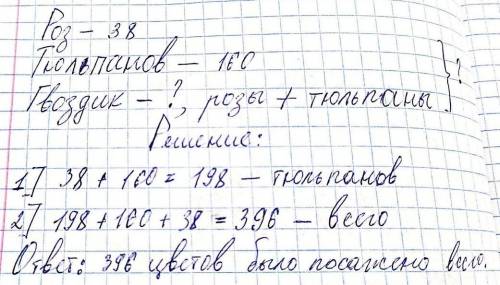 Роз – 38
Тюльпанов – 160
Гвоздик – ?, розы + тюльпаны } ?
Решение:
1) 38 + 160 = 198 – тюльпанов
2) 198 + 160 + 38 = 396 – всего
Ответ: 396 цветов было посажено всего.